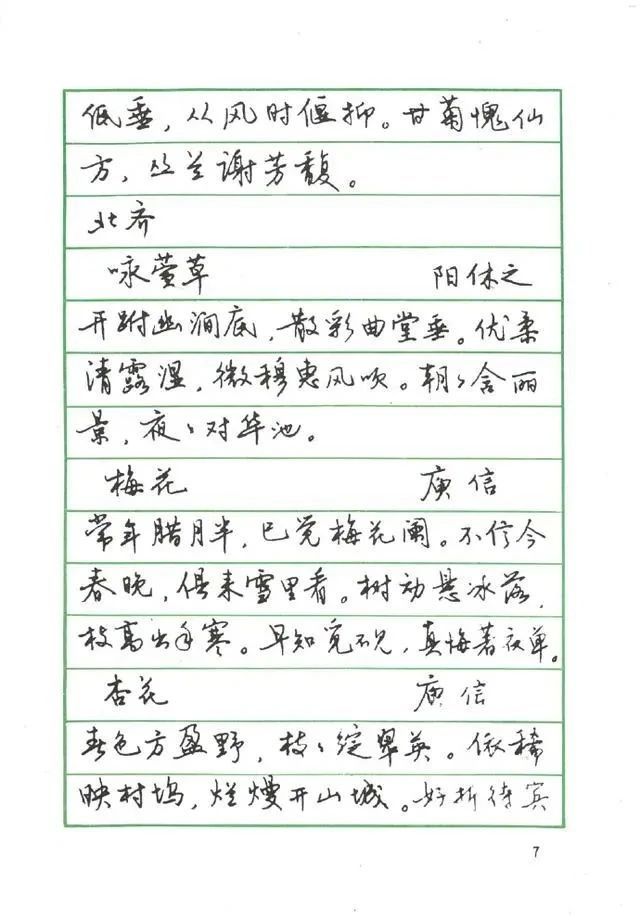 低垂，从风时偃抑。甘菊愧仙
方，丛兰谢芳馥。
北齐
咏萱草 阳休之
开跗幽涧底，散彩曲堂垂。优柔
清露湿，微穆惠风吹。朝々含丽
景，夜々对华池。
梅花 庾信
常年腊月半，已觉梅花阑。不信今
春晚，俱来雪里看。树动悬冰落，
枝高出手寒。早知觅不见，真悔著衣单。
杏花 庾信
春色方盈野，枝々绽翠英。依稀
映村坞，烂熳开山城。好折待宾
7